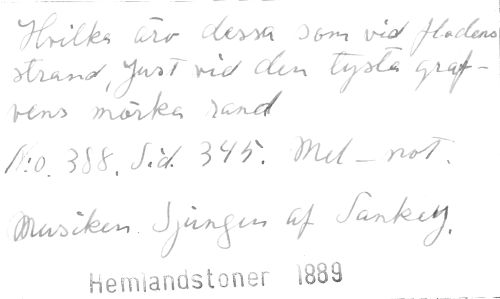 Hvilka äro dessa som vid flodens
strand, Just vid den tysta graf-
vens mörka rand
N:o. 388. Sid. 345. Mel-not.
Musiken. Sjungen af Sankey.
Hemlandstoner 1889